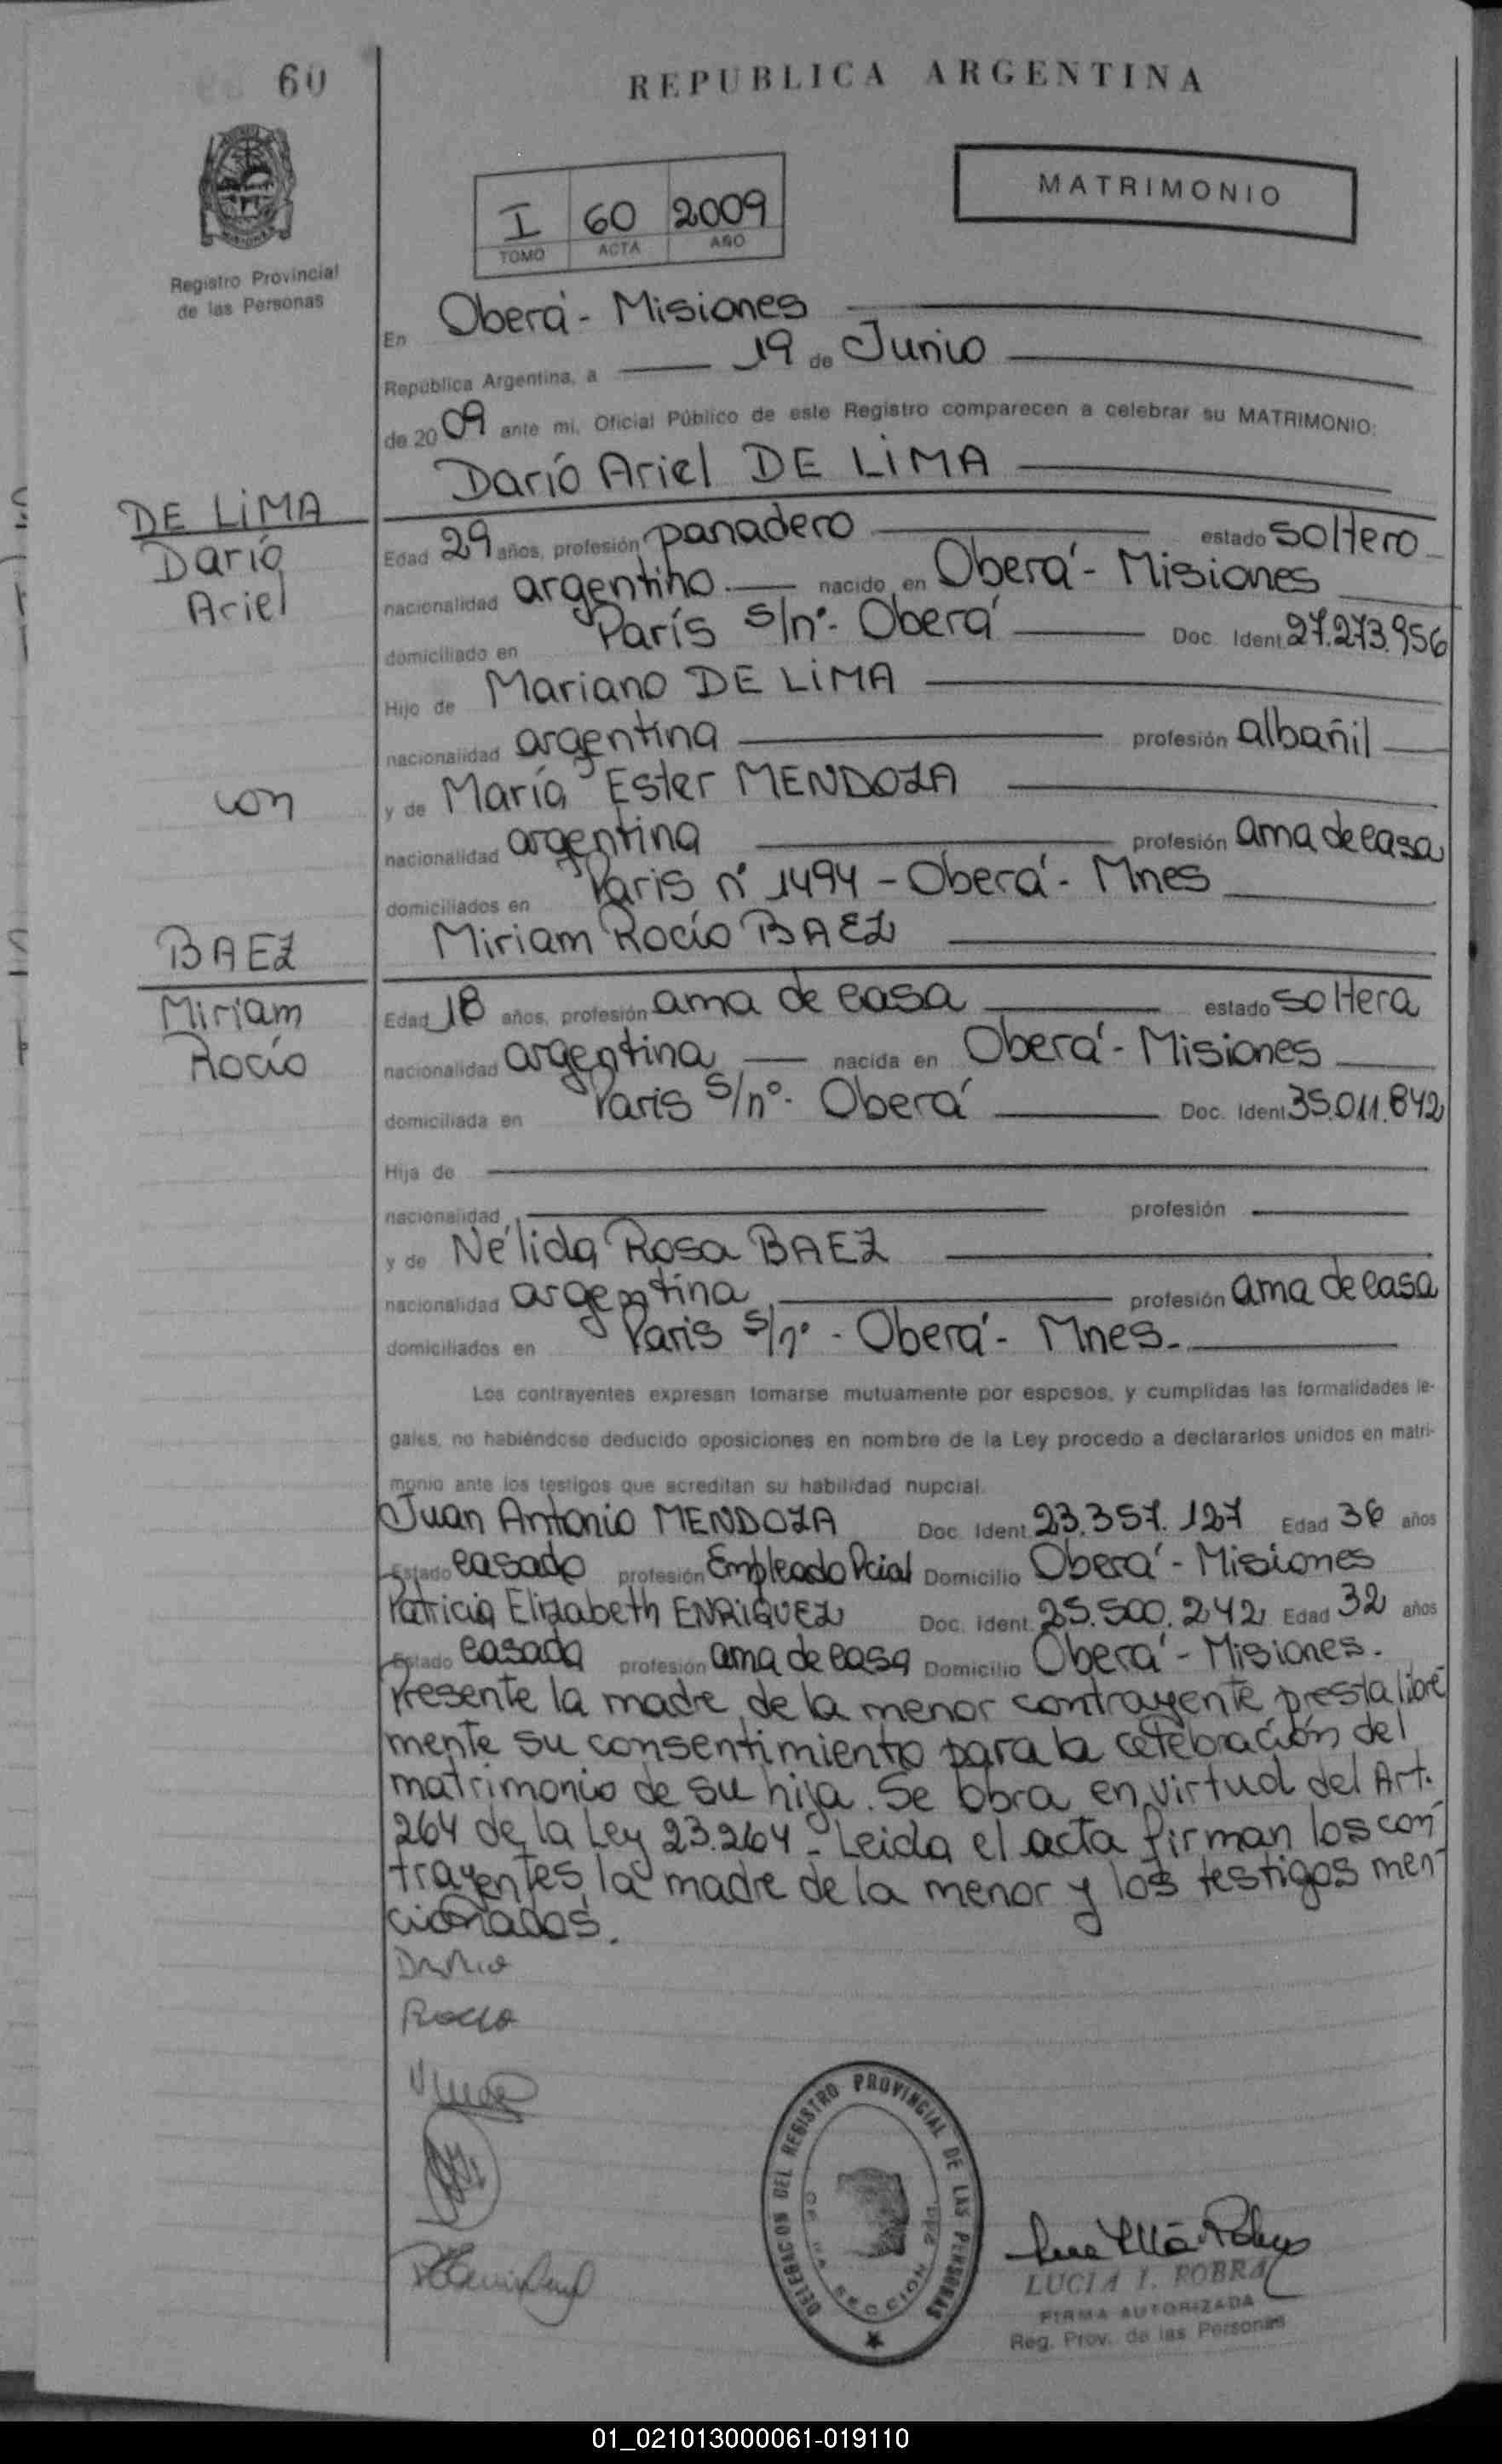 60
REPUBLICA ARGENTINA
MISIONES
Registro Provincial
de las Personas
I 60 2009
TOMO ACTA AÑO
MATRIMONIO
En Oberá - Misiones
República Argentina, a 19 de Junio
de 2009 ante mi, Oficial Público de este Registro comparecen a celebrar su MATRIMONIO:
Darío Ariel DE LiMA
DE LiMA
Darío
Ariel
Edad 29 años, profesión panadero estado soltero
nacionalidad argentino nacido en Oberá - Misiones
domiciliado en París s/nº - Oberá Doc. Ident. 27.273.956
Hijo de Mariano DE LiMA
nacionalidad argentina profesión albañil
con
y de María Ester MENDOZA
nacionalidad argentina profesión ama de casa
domiciliados en Paris nº 1494 - Oberá - Mnes
Miriam Rocío BAEZ
BAEZ
Miriam
Rocío
Edad 18 años, profesión ama de casa estado soltera
nacionalidad argentina nacida en Oberá - Misiones
domiciliada en Paris s/nº - Oberá Doc. Ident. 35.011.842
Hija de
nacionalidad profesión
y de Nélida Rosa BAEZ
nacionalidad argentina profesión ama de casa
domiciliados en Paris s/nº - Oberá - Mnes.
Los contrayentes expresan tomarse mutuamente por esposos, y cumplidas las formalidades le-
gales, no habiéndose deducido oposiciones en nombre de la Ley procedo a declararlos unidos en matri-
monio ante los testigos que acreditan su habilidad nupcial.
Juan Antonio MENDOZA Doc. Ident. 23.357.127 Edad 36 años
Estado casado profesión Empleado Pcial Domicilio Oberá - Misiones
Patricia Elizabeth ENRiQUEZ Doc. Ident. 25.500.242 Edad 32 años
Estado casada profesión ama de casa Domicilio Oberá - Misiones.
Presente la madre de la menor contrayente presta libre-
mente su consentimiento para la celebración del
matrimonio de su hija. Se obra en virtud del Art.
264 de la Ley 23.264 - Leida el acta firman los con-
trayentes, la madre de la menor y los testigos men-
cionados.
Dario
Rocio
DELEGACION DEL REGISTRO PROVINCIAL DE LAS PERSONAS
SECCION
LUCIA I. POBRA
FIRMA AUTORIZADA
Reg. Prov. de las Personas
01_021013000061-019110